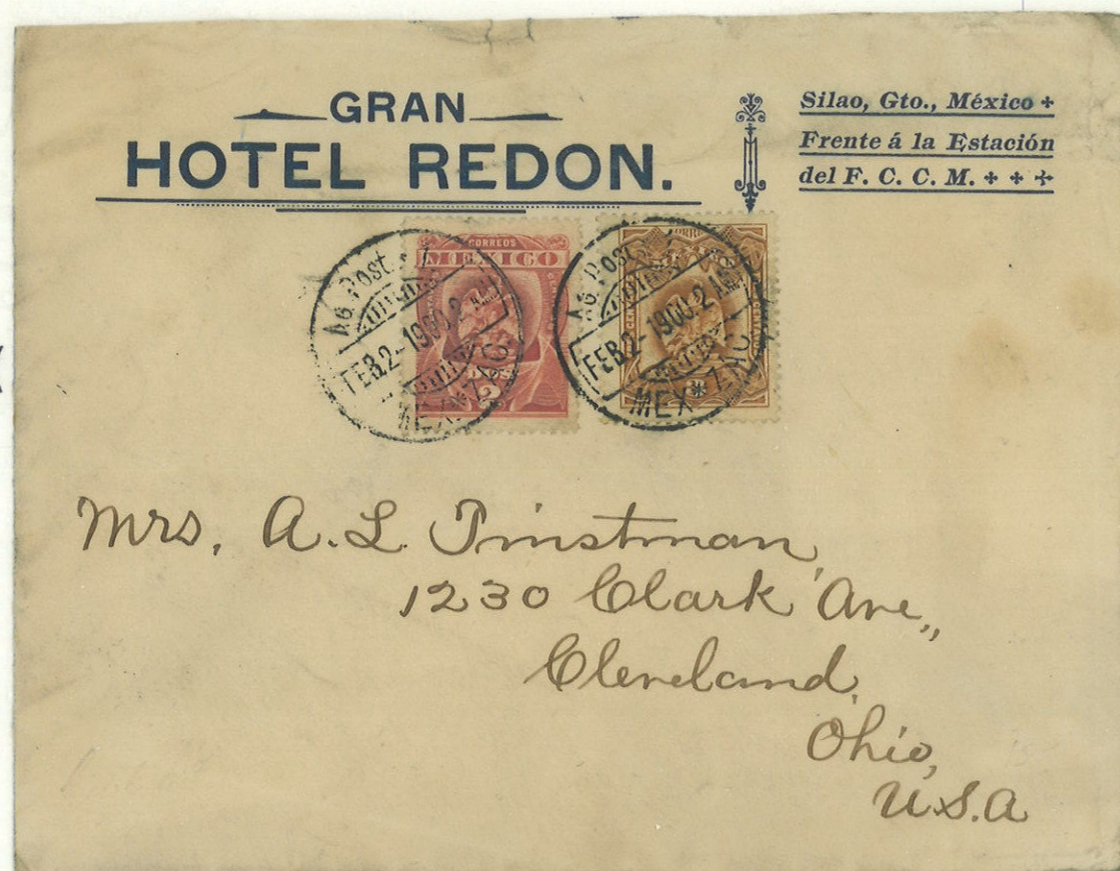 GRAN
HOTEL REDON.
Silao, Gto., México
Frente á la Estación
del F. C. C. M.
CORREOS
MEXICO
AG. Post.
FEB. 2-1900. 2
MEX * ZAC
AG. Post.
FEB. 2-1900. 2
MEX * ZAC
Mrs. A. L. Tinstman,
1230 Clark Ave,,
Cleveland,
Ohio,
U.S.A